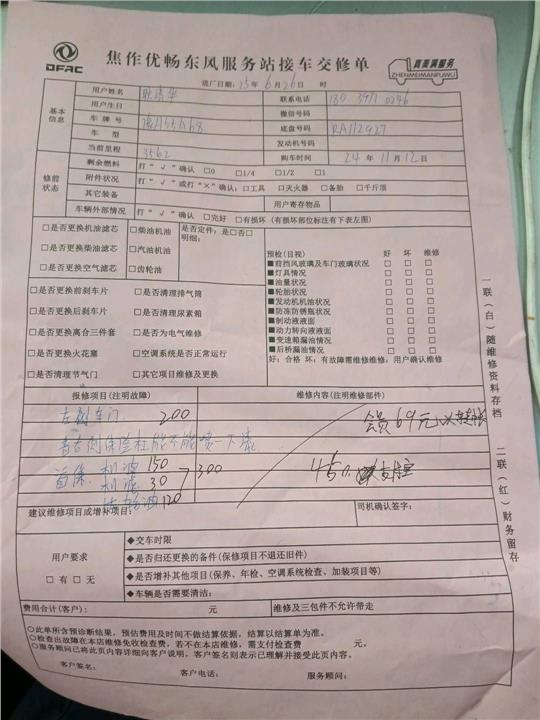 DFAC
焦作优畅东风服务站接车交修单
真英满服务
ZHENMEIMANFUWU
送厂日期：25年 6月 26日 时
基本信息
用户姓名 联系电话
用户生日 微信号码
车牌号 底盘号码 RA112927
车型 发动机号码
当前里程 3562 购车时间 24年 11月 12日
修前状态
剩余燃料 打“√”确认 □0 □1/4 □1/2 □1
附件状况 打“√”或打“×”确认：□工具 □灭火器 □备胎 □千斤顶
其它装备 用户寄存物品
车辆外部情况 打“√”确认 □完好 □有损坏（有损坏部位标注有下表左图）
□是否更换机油滤芯 □柴油机油 是否定件：是□否□
明细：
□是否更换柴油滤芯 □汽油机油
□是否更换空气滤芯 □齿轮油
预检（目视） 好 坏 维修
■前挡风玻璃及车门玻璃状况 □ □ □
■灯具情况 □ □ □
■油量状况 □ □ □
■轮胎状况 □ □ □
■发动机机油状况 □ □ □
■防冻防锈瓶状况 □ □ □
■制动液液面 □ □ □
■动力转向液液面 □ □ □
■变速箱漏油情况 □ □ □
■后桥漏油情况 □ □ □
好：合格 坏：有故障需维修维修：用户确认维修
□是否更换前刹车片 □是否清理排气筒
□是否更换后刹车片 □是否清理尿素箱
□是否更换离合三件套 □是否为电气维修
□是否更换火花塞 □空调系统是否正常运行
□是否清理节气门 □其它项目维修及更换
报修项目（注明故障） 维修内容（注明维修部件）
左侧车门 200
会员69元
看右侧保险杠能不能喷一下漆
首保 机油 150
机滤 30
300
120
450
建议维修项目或增补项目： 司机确认签字：
用户要求
□有 □无
◆交车时限
◆是否归还更换的备件（保修项目不退还旧件）
◆是否增补其他项目（保养、年检、空调系统检查、加装项目等）
◆车辆是否需要清洁：
费用合计（客户）： 元 维修及三包件不允许带走
○此单所含预诊断结果，预估费用及时间不做结算依据，结算以结算单为准。
○检查出故障在本店维修免收检查费，若不在本店维修，需支付检查费 元。
○服务顾问已将此页内容详细向客户说明，客户签名则表示已理解并接受此页内容。
客户签名： 客户电话： 服务顾问：
一联（白）随维修资料存档
二联（红）财务留存